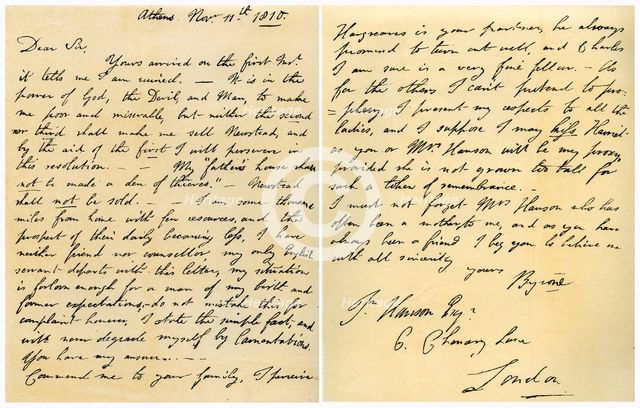 Athens. Novr. 11th. 1810.
Dear Sir,
Yours arrived on the first Inst.
it tells me I am ruined. — It is in the
power of God, the Devil, and Man, to make
me poor and miserable, but neither the second
nor third shall make me sell Newstead, and
by the aid of the first I will persevere in
this resolution. — — My "father's house shall
not be made a den of thieves." — Newstead
shall not be sold. — — I am some thousand
miles from home with few resources, and the
prospect of their daily becoming less, I have
neither friend nor counsellor, my only English
servant departs with this letter, my situation
is forlorn enough for a man of my birth and
former expectations, — do not mistake this for
complaint however, I state the simple fact, and
will never degrade myself by Lamentations.
You have my answer. — —
Commend me to your family, I perceive
Hargreaves is your partner, he always
promised to turn out well, and Charles
I am sure is a very fine fellow. — As
for the others I can't pretend to pro=
=phesy, I present my respects to all the
Ladies, and I suppose I may kiss Harriet
as you or Mrs. Hanson will be my proxy,
provided she is not grown too tall for
such a token of remembrance. —
I must not forget Mrs. Hanson who has
often been a mother to me, and as you have
always been a friend I beg you to believe me
with all sincerity
yours
Byron
Jn. Hanson Esqr.
6. Chancery Lane
London